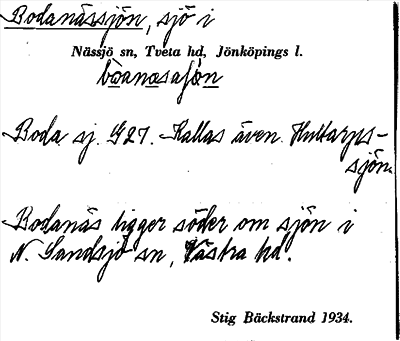 Bodanässjön, sjö i
Nässjö sn, Tveta hd, Jönköpings l.
Boda sj. G27. Kallas även Hultarps-
sjön.
Bodanäs ligger söder om sjön i
N. Sandsjö sn, Västra hd.
Stig Bäckstrand 1934.